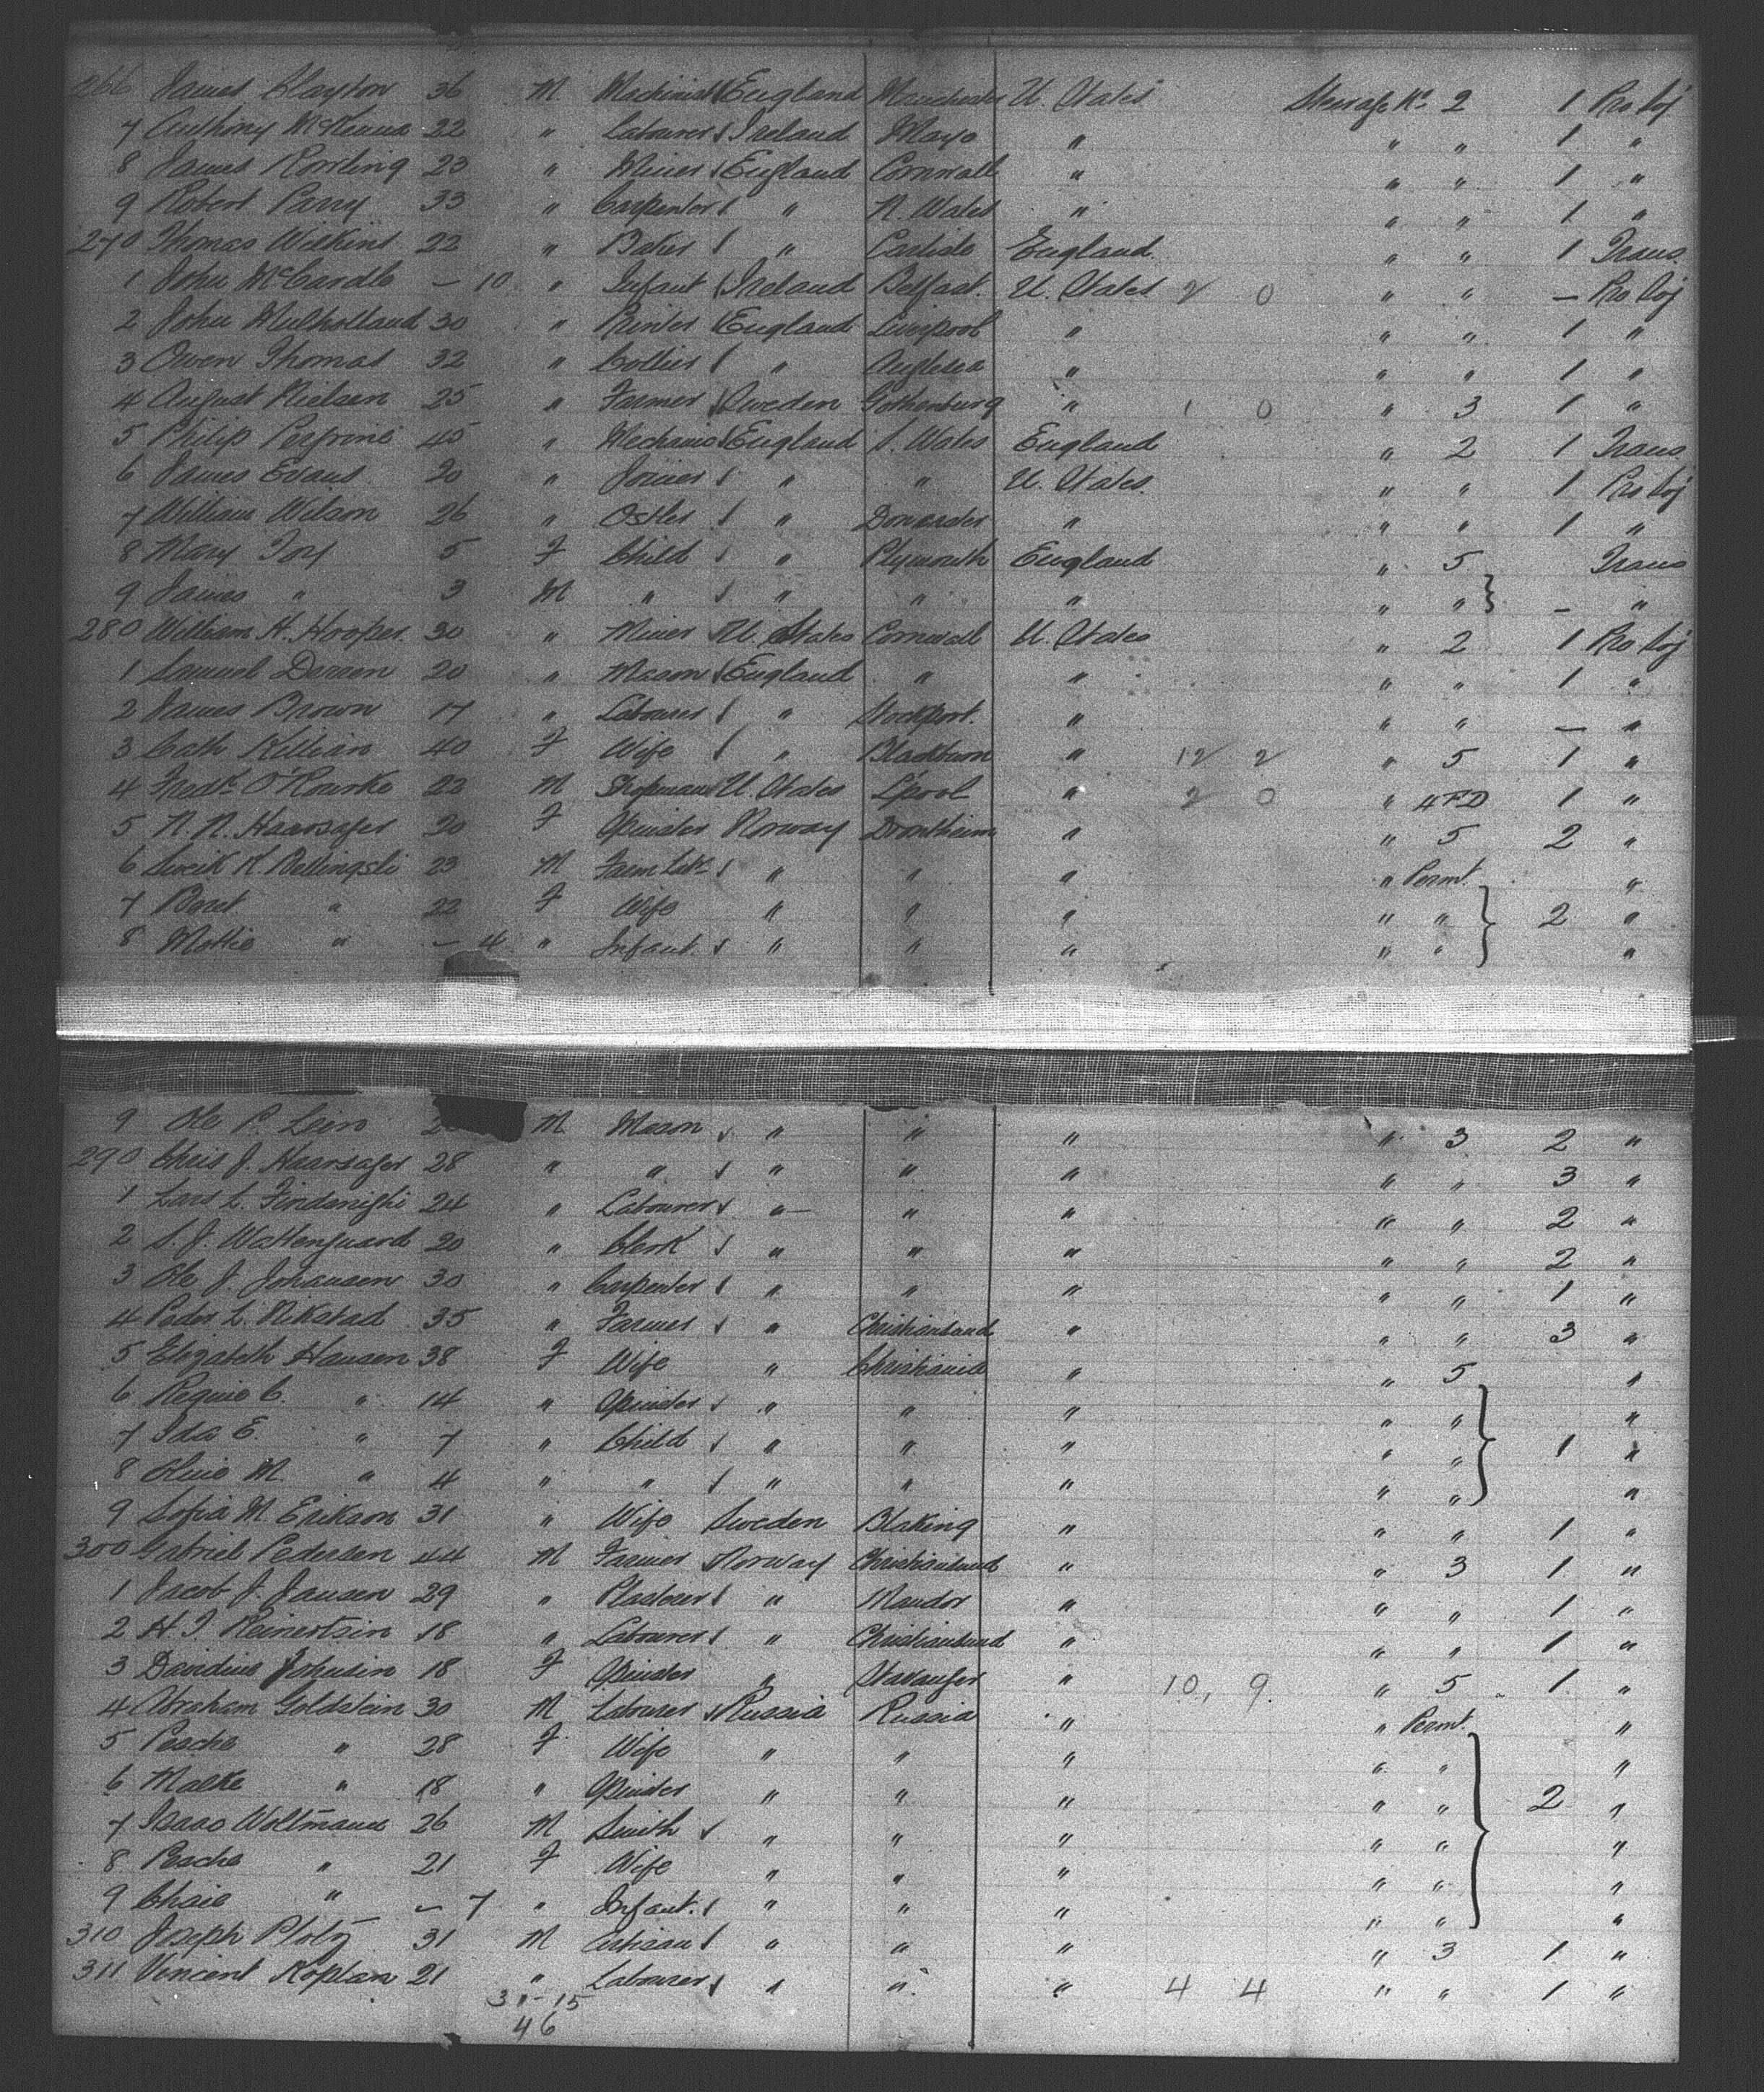 266 James Clayton 36 M Machinist England Manchester U. States Steerage No 2 1 Pro Soj
7 Anthony McKenna 22 " Labourer Ireland Mayo " " " 1 "
8 James Rowling 23 " Miner England Cornwall " " " 1 "
9 Robert Parry 33 " Carpenter " N. Wales " " " 1 "
270 Thomas Wilkins 22 " Baker " Carlisle England " " 1 Trans.
1 John McCardle – 10 " Infant Ireland Belfast. U. States 2 0 " " – Pro Soj
2 John Mulholland 30 " Printer England Liverpool " " " 1 "
3 Owen Thomas 32 " Collier " Anglesea " " " 1 "
4 August Nielsen 25 " Farmer Sweden Gothenburg " 1 0 " 3 1 "
5 Philip 45 " Mechanic England S. Wales England " 2 1 Trans
6 James Evans 20 " Joiner " " U. States. " " 1 Pro Soj
7 William Wilson 26 " Ostler " " " " 1 "
8 Mary 5 F Child " Plymouth England " 5 Trans
9 James " 3 M " " " " " " – "
280 William H. Hooper 30 " Miner U. States Cornwall U. States " 2 1 Pro Soj
1 Samuel 20 " Mason England " " " " 1 "
2 James Brown 17 " Labourer " Stockport. " " " – "
3 Cath Killian 40 F Wife " Blackburn " 12 2 " 5 1 "
4 Fredk O'Rourke 23 M Shopman U. States L'pool " 2 0 " 4FD 1 "
5 N. N. Haarsager 20 F Spinster Norway Drontheim " " 5 2 "
6 K. 23 M Farm Labr " " " " Permt. "
7 Beret " 22 F Wife " " " " " 2 "
8 Mattie " – 4 " Infant. " " " " " "
9 Ole P. Lein M Mason " " " " 3 2 "
290 Chris J. Haarsager 28 " " " " " " " 3 "
1 Lars L. 24 " Labourer " " " " " 2 "
2 S. J. 20 " Clerk " " " " " 2 "
3 Ole J. Johansen 30 " Carpenter " " " " " 1 "
4 Peder L. Rikstad 35 " Farmer " Christiansund " " " 3 "
5 Elizabeth Hansen 38 F Wife " Christiania " " 5 "
6 C. " 14 " Spinster " " " " " "
7 Ida E. " 7 " Child " " " " " 1 "
8 M " 4 " " " " " " " "
9 Sofia M. Erikson 31 " Wife Sweden Blaking " " " 1 "
300 Gabriel Pedersen 44 M Farmer Norway Christiansund " " 3 1 "
1 Jacob J. Jansen 29 " Plasterer " " " " 1 "
2 H. T. Reinertsin 18 " Labourer " Christiansund " " " 1 "
3 Johnsin 18 F Spinster " Stavanger " 10, 9. " 5 1 "
4 Abraham Goldstein 30 M Labourer Russia Russia " " Permt. "
5 Pesche " 28 F Wife " " " " " "
6 Malke " 18 " Spinster " " " " " 2 "
7 Isaac Woltmann 26 M Smith " " " " " "
8 Pesche " 21 F Wife " " " " " "
9 Chaie " – 7 " Infant. " " " " " "
310 Joseph Plotz 31 M Artisan " " " " 3 1 "
311 Vincent Koplan 21 " Labourer " " " 4 4 " " 1 "
31–15
46